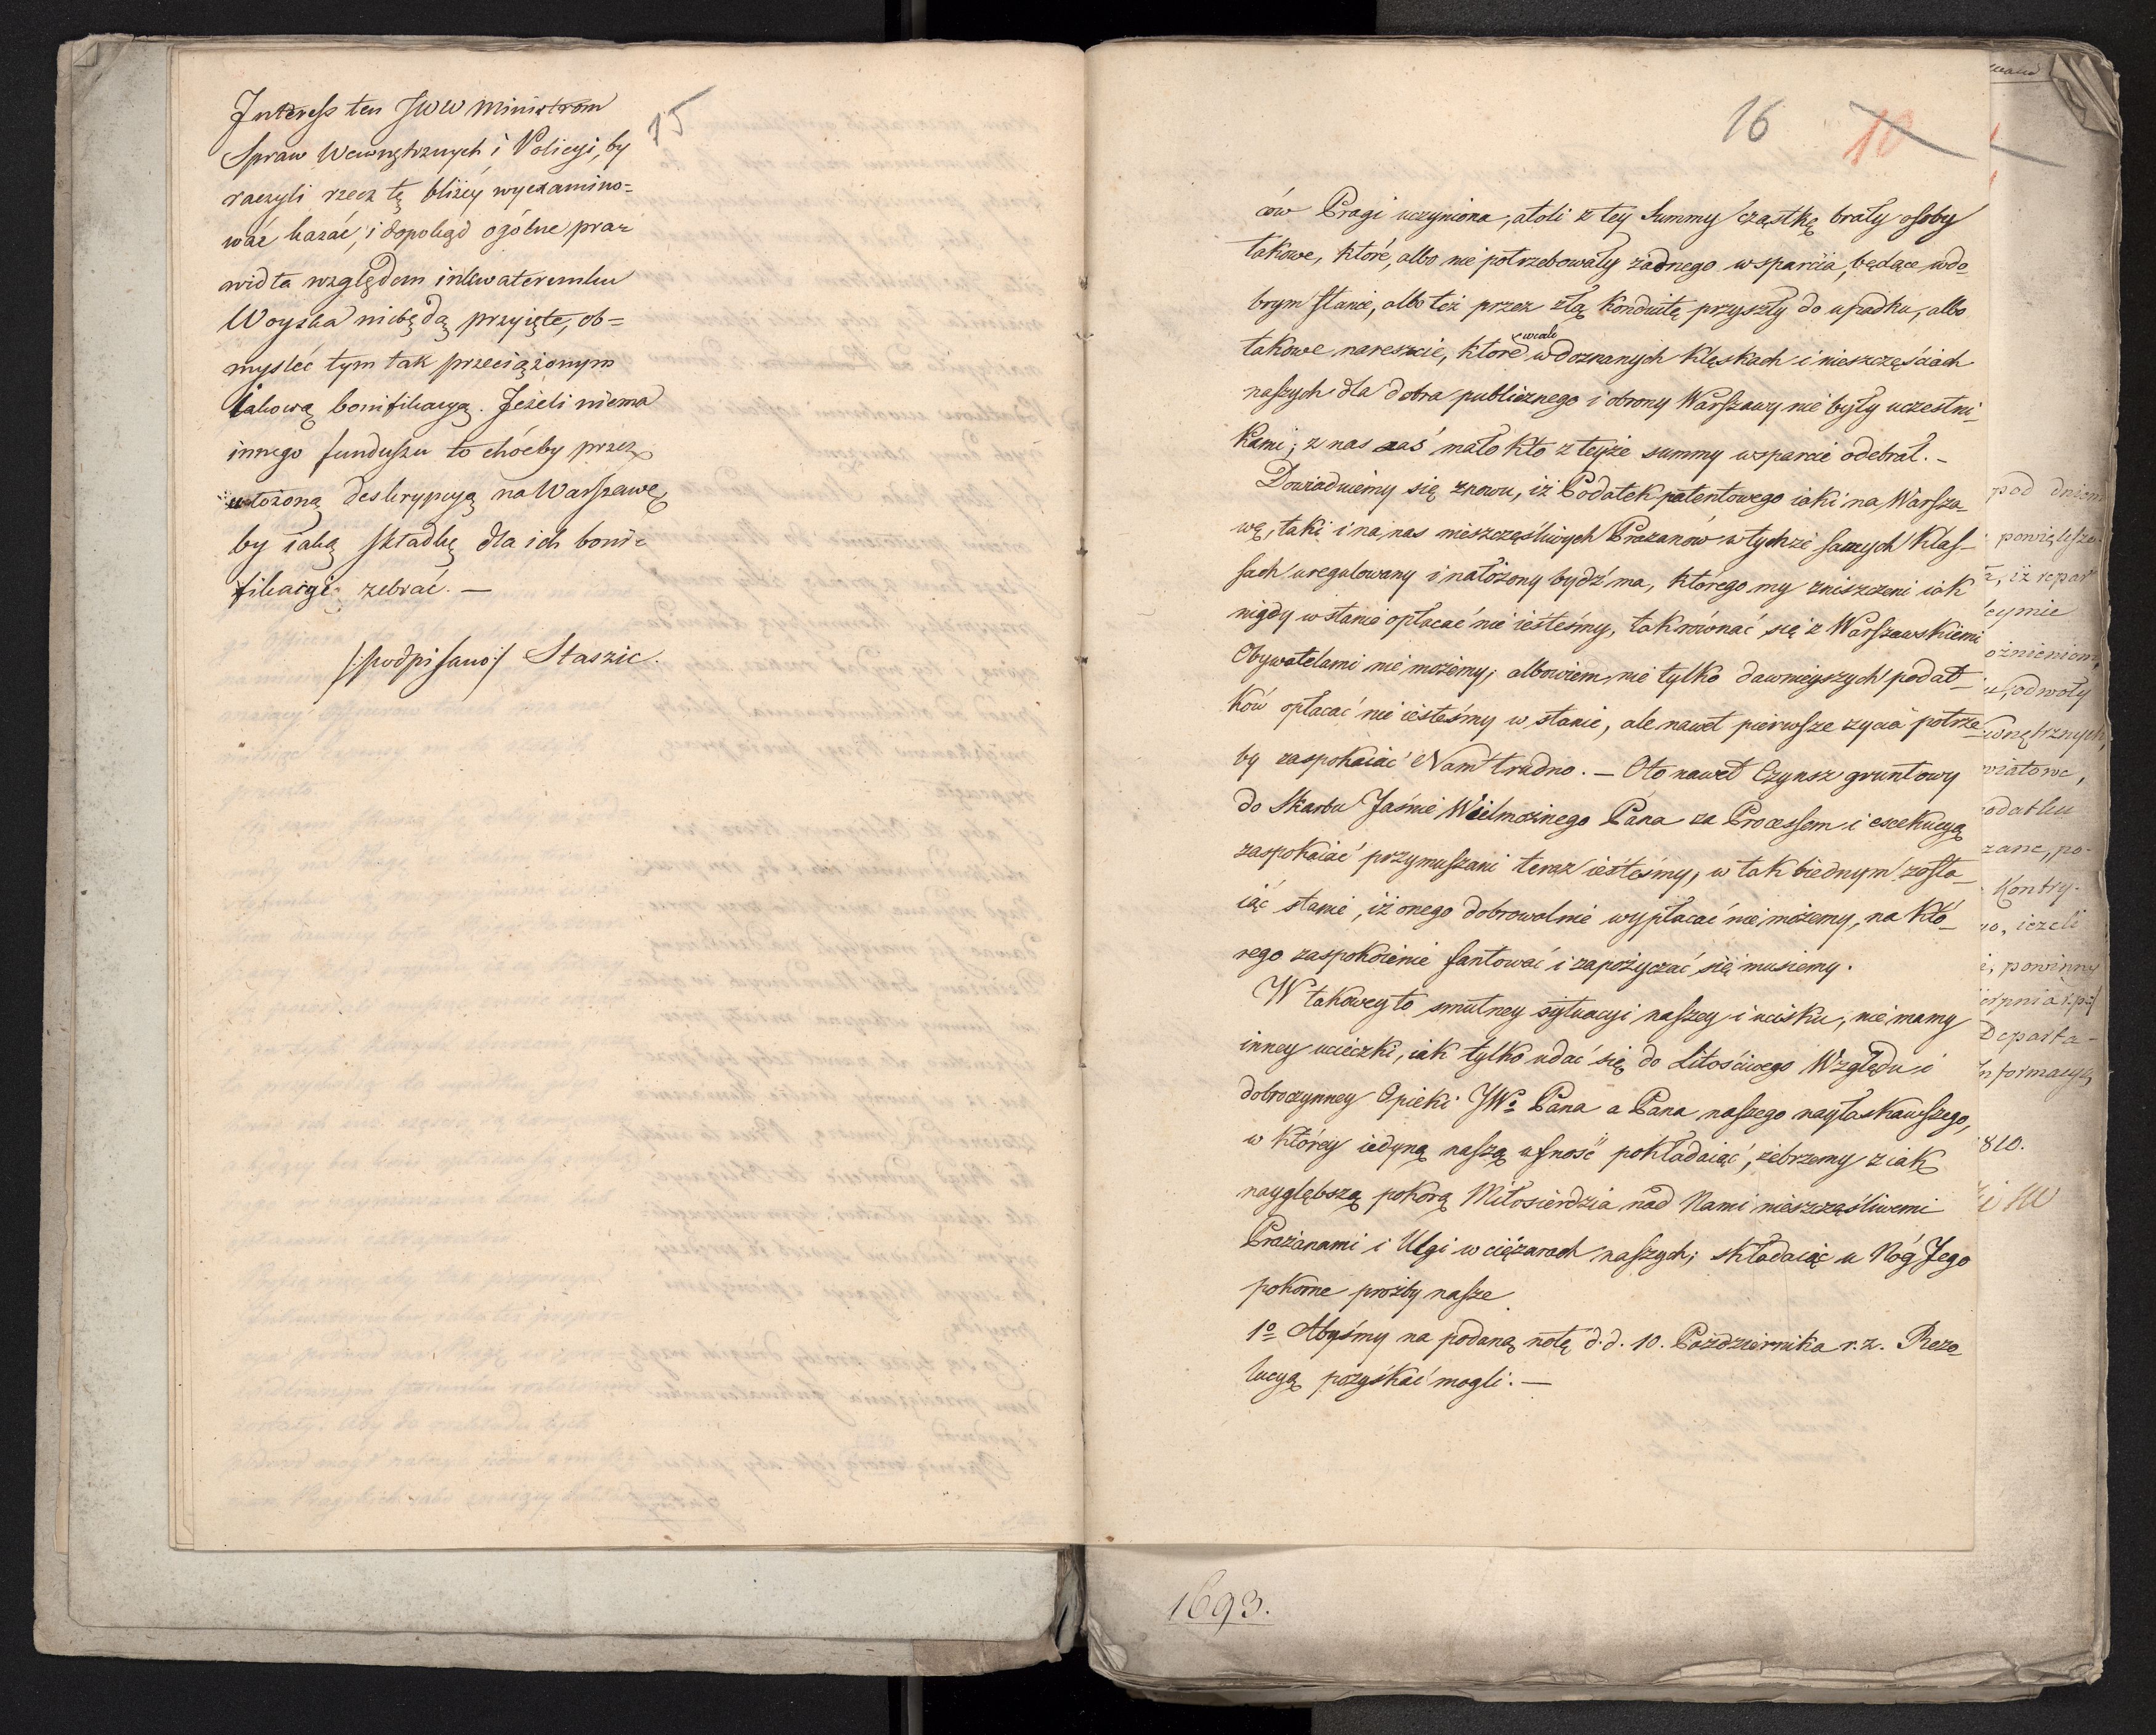 15
Interess ten JWW Ministrom
Spraw Wewnętrznych i Policyi, by
raczyli rzecz tę bliżey wyexamino=
wać kazać, i dopokąd ogólne pra=
widła względem inkwaterunku
Woyska niebędą przyięte, ob=
mysleć tym tak przeciążonym
iakową bonifikacyą. Jeżeli niema
innego funduszu to chóćby przez
ułożoną deskrypcyą na Warszawę,
by iaką składkę dla ich boni=
fikacyi zebrać. —
/:podpisano:/ Staszic.
16 10
ców Pragi uczyniona, atoli z tey Summy cząstkę brały osoby
takowe, które, albo nie potrzebowały żadnego wsparcia, będące w do-
brym stanie, albo też przez złą Konduitę przyszły do upadku, albo
takowe nareszcie, które wcale w doznanych Klęskach i nieszczęściach
naszych dla dobra publicznego i obrony Warszawy nie były uczestni-
kami; z nas zaś mało kto z teyże summy wsparcie odebrał. –
Dowiaduiemy się znowu, iż Podatek patentowego iaki na Warsza-
wę, taki i na nas nieszczęśliwych Prażanów w tychże samych Klas-
sach uregulowany i nałożony bydź ma, którego my zniszczeni iak
nigdy w stanie opłacać nie iesteśmy, tak równać się z Warszawskiemi
Obywatelami nie możemy; albowiem nie tylko dawnieyszych podat-
ków opłacać nie iesteśmy w stanie, ale nawet pierwsze życia potrze-
by zaspokaiać Nam trudno. — Oto nawet Czynsz gruntowy
do Skarbu Jaśnie Wielmożnego Pana za Processem i exekucyą
zaspokaiać przymuszani teraz iesteśmy, w tak biednym zosta-
iąc stanie, iż onego dobrowolnie wypłacać nie możemy, na któ-
rego zaspokoienie fantować i zapożyczać się musiemy.
W takowey to smutney sytuacyi naszey i ucisku, nie mamy
inney ucieczki, iak tylko udać się do Litościwego Względu i
dobroczynney Opieki JWo Pana a Pana naszego nayłaskawszego,
w którey iedyną naszą ufność pokładaiąc, żebrzemy z iak
naygłębszą pokorą Miłosierdzia nad Nami nieszczęśliwemi
Prażanami i Ulgi w ciężarach naszych; składaiąc u Nóg Jego
pokorne prośby nasze
1o Abyśmy na podaną notę d. d. 10. Października r. z. Rezo-
lucyą pozyskać mogli. —
1693.
pod dniem
powiększe-
iż repar
ożnieniom,
odwoły
wnętrznych,
wiatowe,
odatku
zane, po-
Kontry-
io, ieżeli
powinny
Departa-
nformacyą
810.